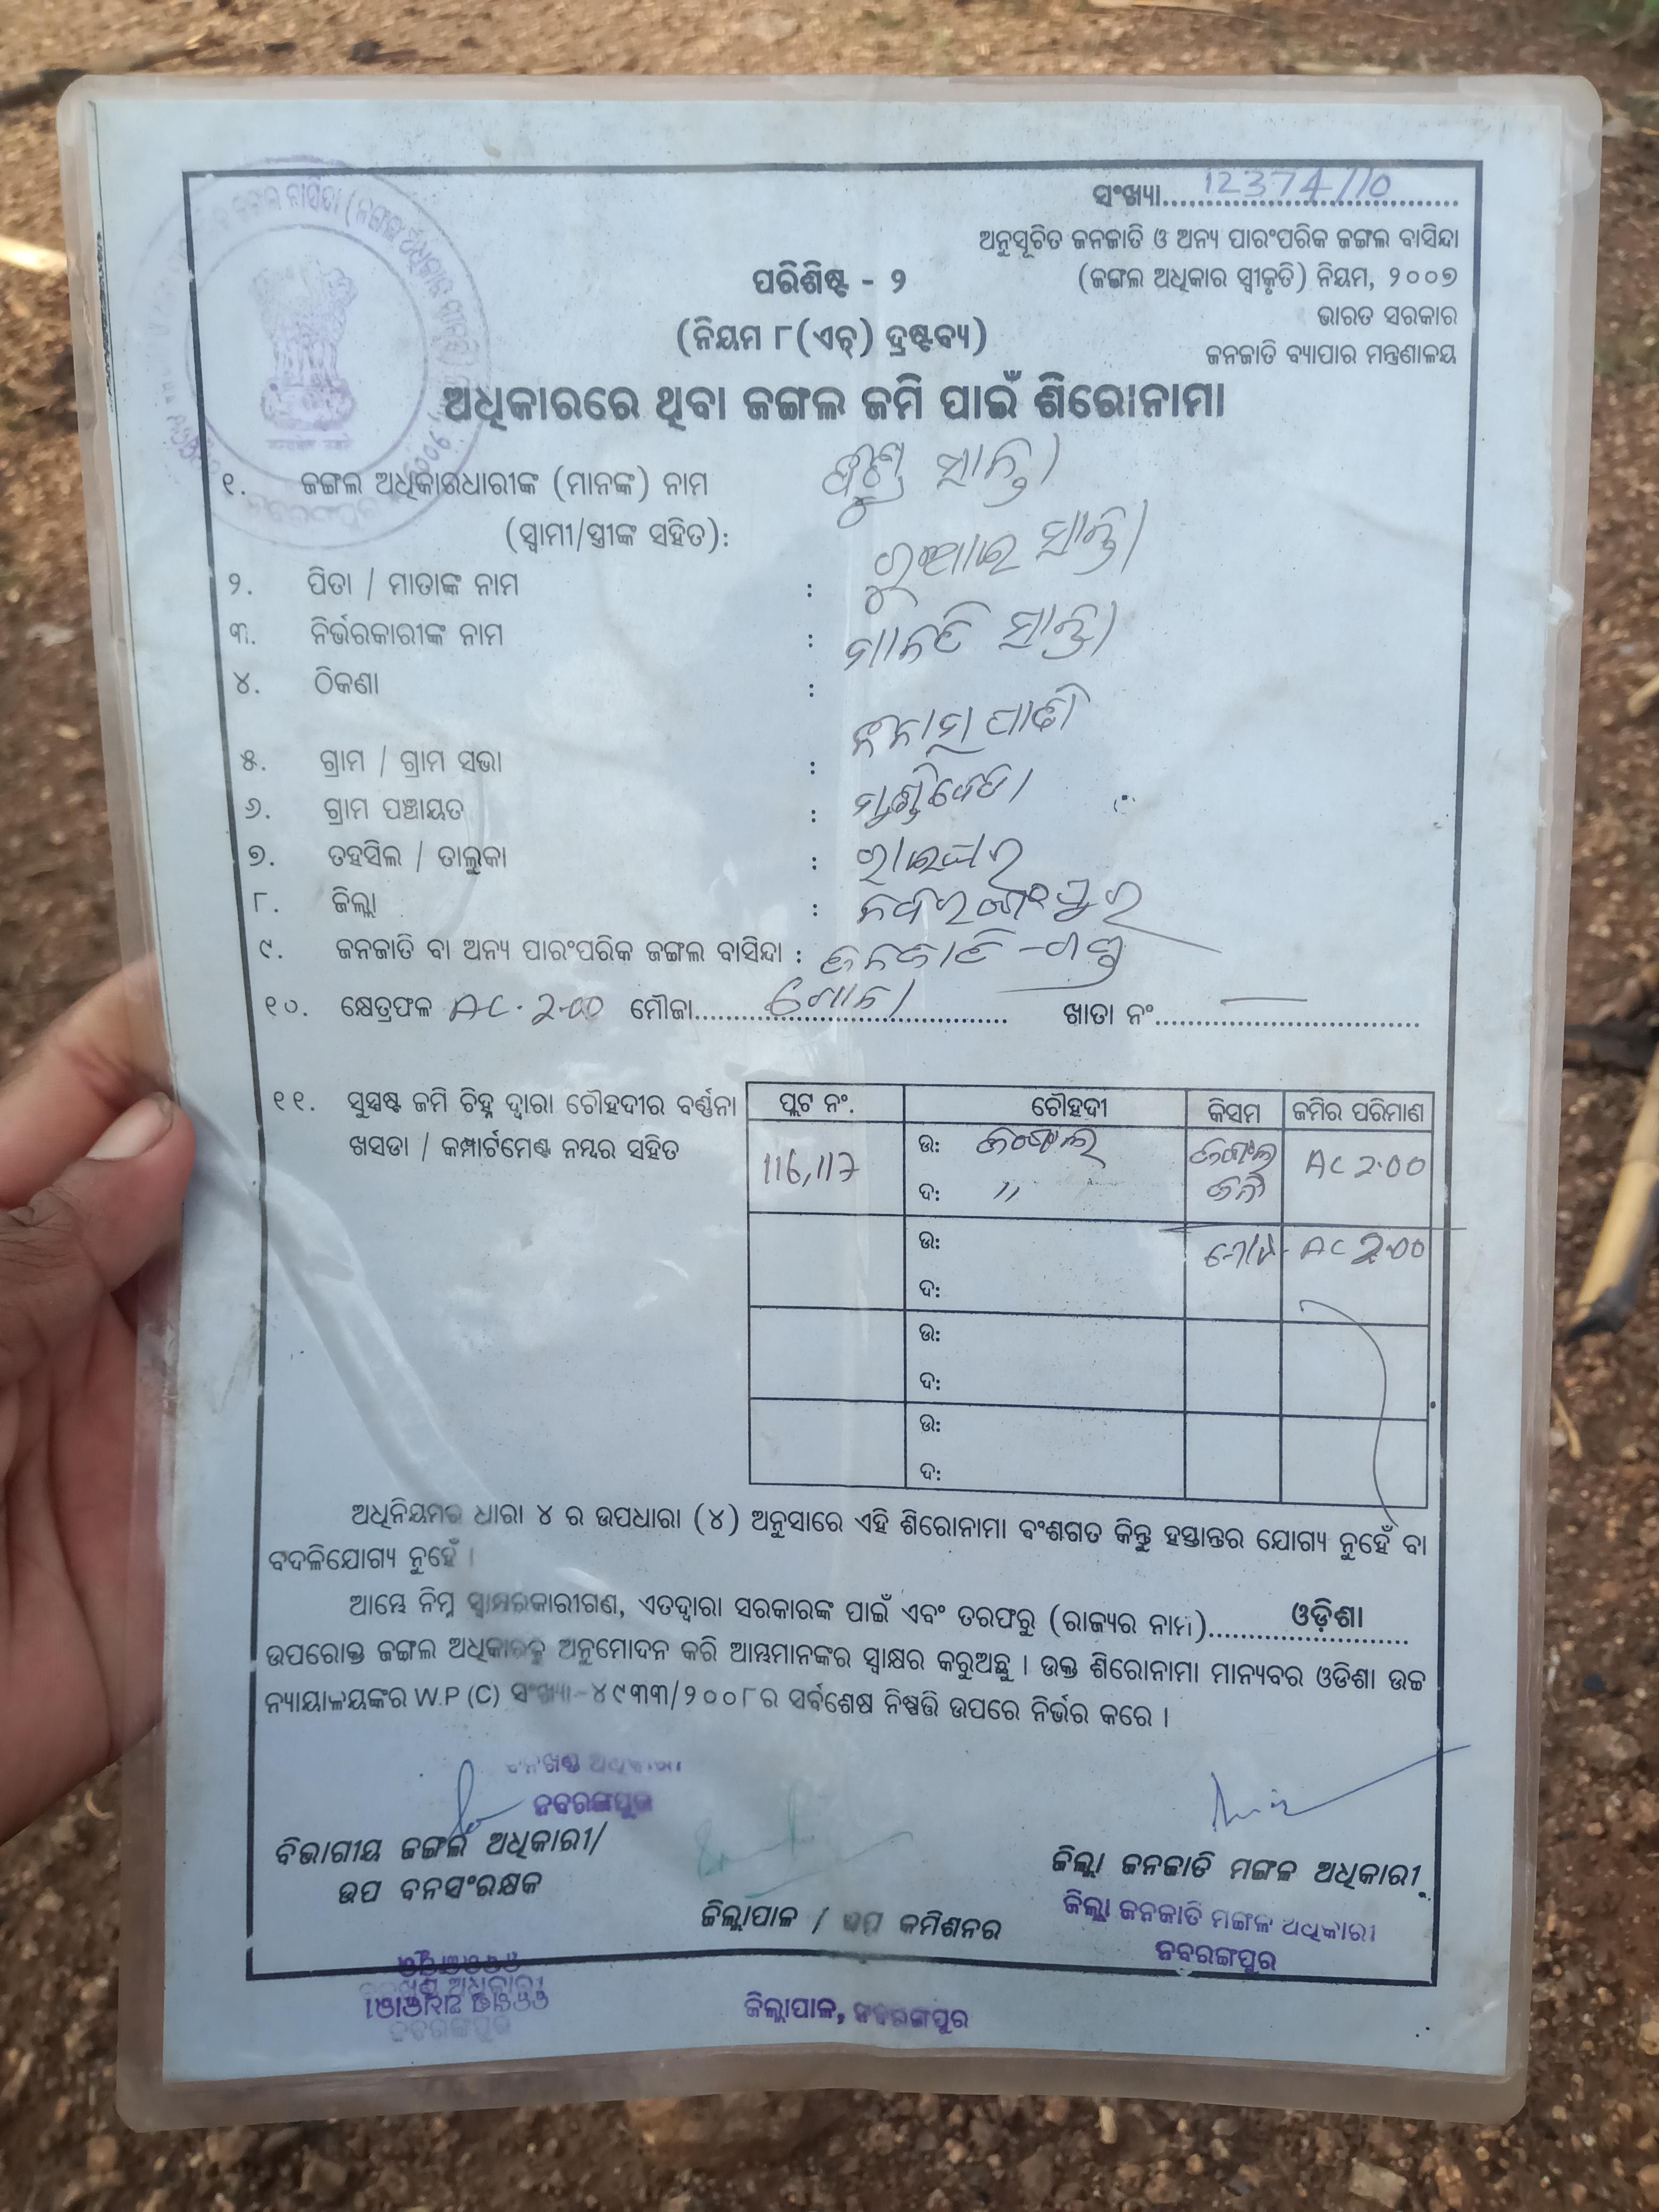 ସଂଖ୍ୟା 12374/10
ଅନୁସୂଚିତ ଜନଜାତି ଓ ଅନ୍ୟ ପାରଂପରିକ ଜଙ୍ଗଲ ବାସିନ୍ଦା
(ଜଙ୍ଗଲ ଅଧିକାର ସ୍ୱୀକୃତି) ନିୟମ, ୨୦୦୭
ଭାରତ ସରକାର
ଜନଜାତି ବ୍ୟାପାର ମନ୍ତ୍ରଣାଳୟ
ପରିଶିଷ୍ଟ - ୨
(ନିୟମ ୮(ଏଚ୍) ଦ୍ରଷ୍ଟବ୍ୟ)
ଅଧିକାରରେ ଥିବା ଜଙ୍ଗଲ ଜମି ପାଇଁ ଶିରୋନାମା
୧. ଜଙ୍ଗଲ ଅଧିକାରଧାରୀଙ୍କ (ମାନଙ୍କ) ନାମ
(ସ୍ୱାମୀ/ସ୍ତ୍ରୀଙ୍କ ସହିତ):
୨. ପିତା / ମାତାଙ୍କ ନାମ :
୩. ନିର୍ଭରକାରୀଙ୍କ ନାମ :
୪. ଠିକଣା :
୫. ଗ୍ରାମ / ଗ୍ରାମ ସଭା :
୬. ଗ୍ରାମ ପଞ୍ଚାୟତ :
୭. ତହସିଲ / ତାଲୁକା : ରାଇଘର
୮. ଜିଲ୍ଲା : ନବରଙ୍ଗପୁର
୯. ଜନଜାତି ବା ଅନ୍ୟ ପାରଂପରିକ ଜଙ୍ଗଲ ବାସିନ୍ଦା : ଜନଜାତି - ଗଣ୍ଡ
୧୦. କ୍ଷେତ୍ରଫଳ AC. 2.00 ମୌଜା ଖାତା ନଂ
୧୧. ସୁସ୍ପଷ୍ଟ ଜମି ଚିହ୍ନ ଦ୍ୱାରା ଚୌହଦୀର ବର୍ଣ୍ଣନା
ଖସଡା / କମ୍ପାର୍ଟମେଣ୍ଟ ନମ୍ବର ସହିତ
ପ୍ଲଟ ନଂ. ଚୌହଦୀ କିସମ ଜମିର ପରିମାଣ
116,117 ଉ: ଜଙ୍ଗଲ ଜଙ୍ଗଲ AC 2.00
ଦ: " ଜମି
ଉ: ମୋଟ - AC 2.00
ଦ:
ଉ:
ଦ:
ଉ:
ଦ:
ଅଧିନିୟମର ଧାରା ୪ ର ଉପଧାରା (୪) ଅନୁସାରେ ଏହି ଶିରୋନାମା ବଂଶଗତ କିନ୍ତୁ ହସ୍ତାନ୍ତର ଯୋଗ୍ୟ ନୁହେଁ ବା
ବଦଳିଯୋଗ୍ୟ ନୁହେଁ ।
ଆମ୍ଭେ ନିମ୍ନ ସ୍ୱାକ୍ଷରକାରୀଗଣ, ଏତଦ୍ୱାରା ସରକାରଙ୍କ ପାଇଁ ଏବଂ ତରଫରୁ (ରାଜ୍ୟର ନାମ) ଓଡ଼ିଶା
ଉପରୋକ୍ତ ଜଙ୍ଗଲ ଅଧିକାରକୁ ଅନୁମୋଦନ କରି ଆମ୍ଭମାନଙ୍କର ସ୍ୱାକ୍ଷର କରୁଅଛୁ । ଉକ୍ତ ଶିରୋନାମା ମାନ୍ୟବର ଓଡିଶା ଉଚ୍ଚ
ନ୍ୟାୟାଳୟଙ୍କର W.P (C) ସଂଖ୍ୟା-୪୯୩୩/୨୦୦୮ର ସର୍ବଶେଷ ନିଷ୍ପତ୍ତି ଉପରେ ନିର୍ଭର କରେ ।
ବନଖଣ୍ଡ ଅଧିକାରୀ
ନବରଙ୍ଗପୁର
ବିଭାଗୀୟ ଜଙ୍ଗଲ ଅଧିକାରୀ/
ଉପ ବନସଂରକ୍ଷକ
ଜିଲ୍ଲାପାଳ / ଉପ କମିଶନର
ଜିଲ୍ଲା ଜନଜାତି ମଙ୍ଗଳ ଅଧିକାରୀ
ଜିଲ୍ଲା ଜନଜାତି ମଙ୍ଗଳ ଅଧିକାରୀ
ନବରଙ୍ଗପୁର
ଜିଲ୍ଲାପାଳ, ନବରଙ୍ଗପୁର